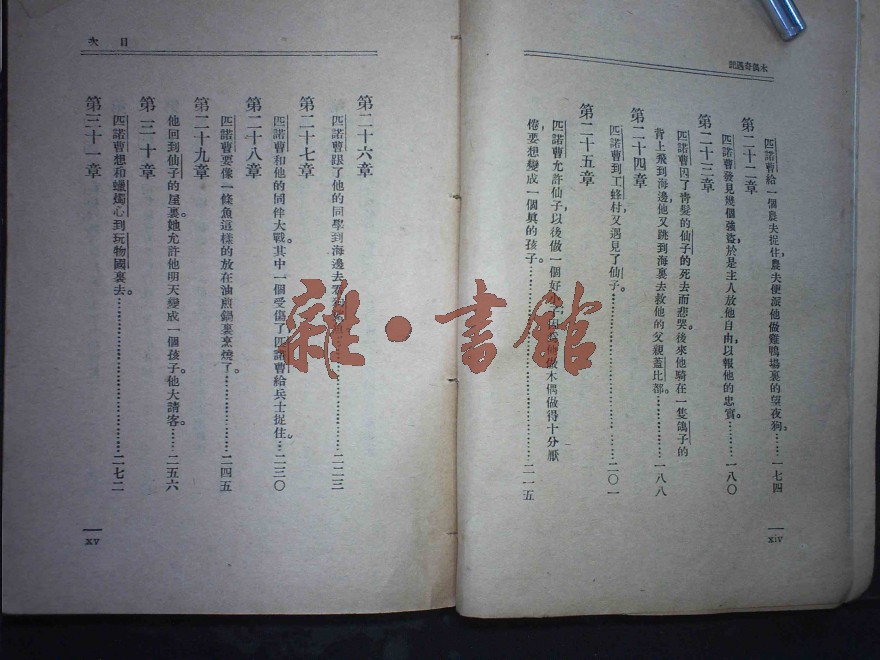 木偶奇遇記
匹諾曹給一個農夫捉住,農夫便派他做雞鴨場裏的望夜狗。……一七四
第二十二章
匹諾曹發見幾個強盜,於是主人放他自由,以報他的忠實。……一八〇
第二十三章
匹諾曹因了青髮的仙子的死去而悲哭。後來他騎在一隻鴿子的
背上飛到海邊,他又跳到海裏去救他的父親蓋比都。……一八八
第二十四章
匹諾曹到工蜂村又遇見了仙子。……二〇一
第二十五章
匹諾曹允許仙子,以後做一個好孩子,因爲他做木偶做得十分厭
倦,要想變成一個眞的孩子。……二一五
xiv
目次
第二十六章
匹諾曹跟了他的同學到海邊去看……二二三
第二十七章
匹諾曹和他的同伴大戰。其中一個受傷了,匹諾曹給兵士捉住。……二三〇
第二十八章
匹諾曹要像一條魚這樣的放在油煎鍋裏烹燒了。……二四五
第二十九章
他回到仙子的屋裏。她允許他明天變成一個孩子。他大請客。……二五六
第三十章
匹諾曹想和蠟燭心到玩物國裏去。……二七二
第三十一章
xv
雜·書館